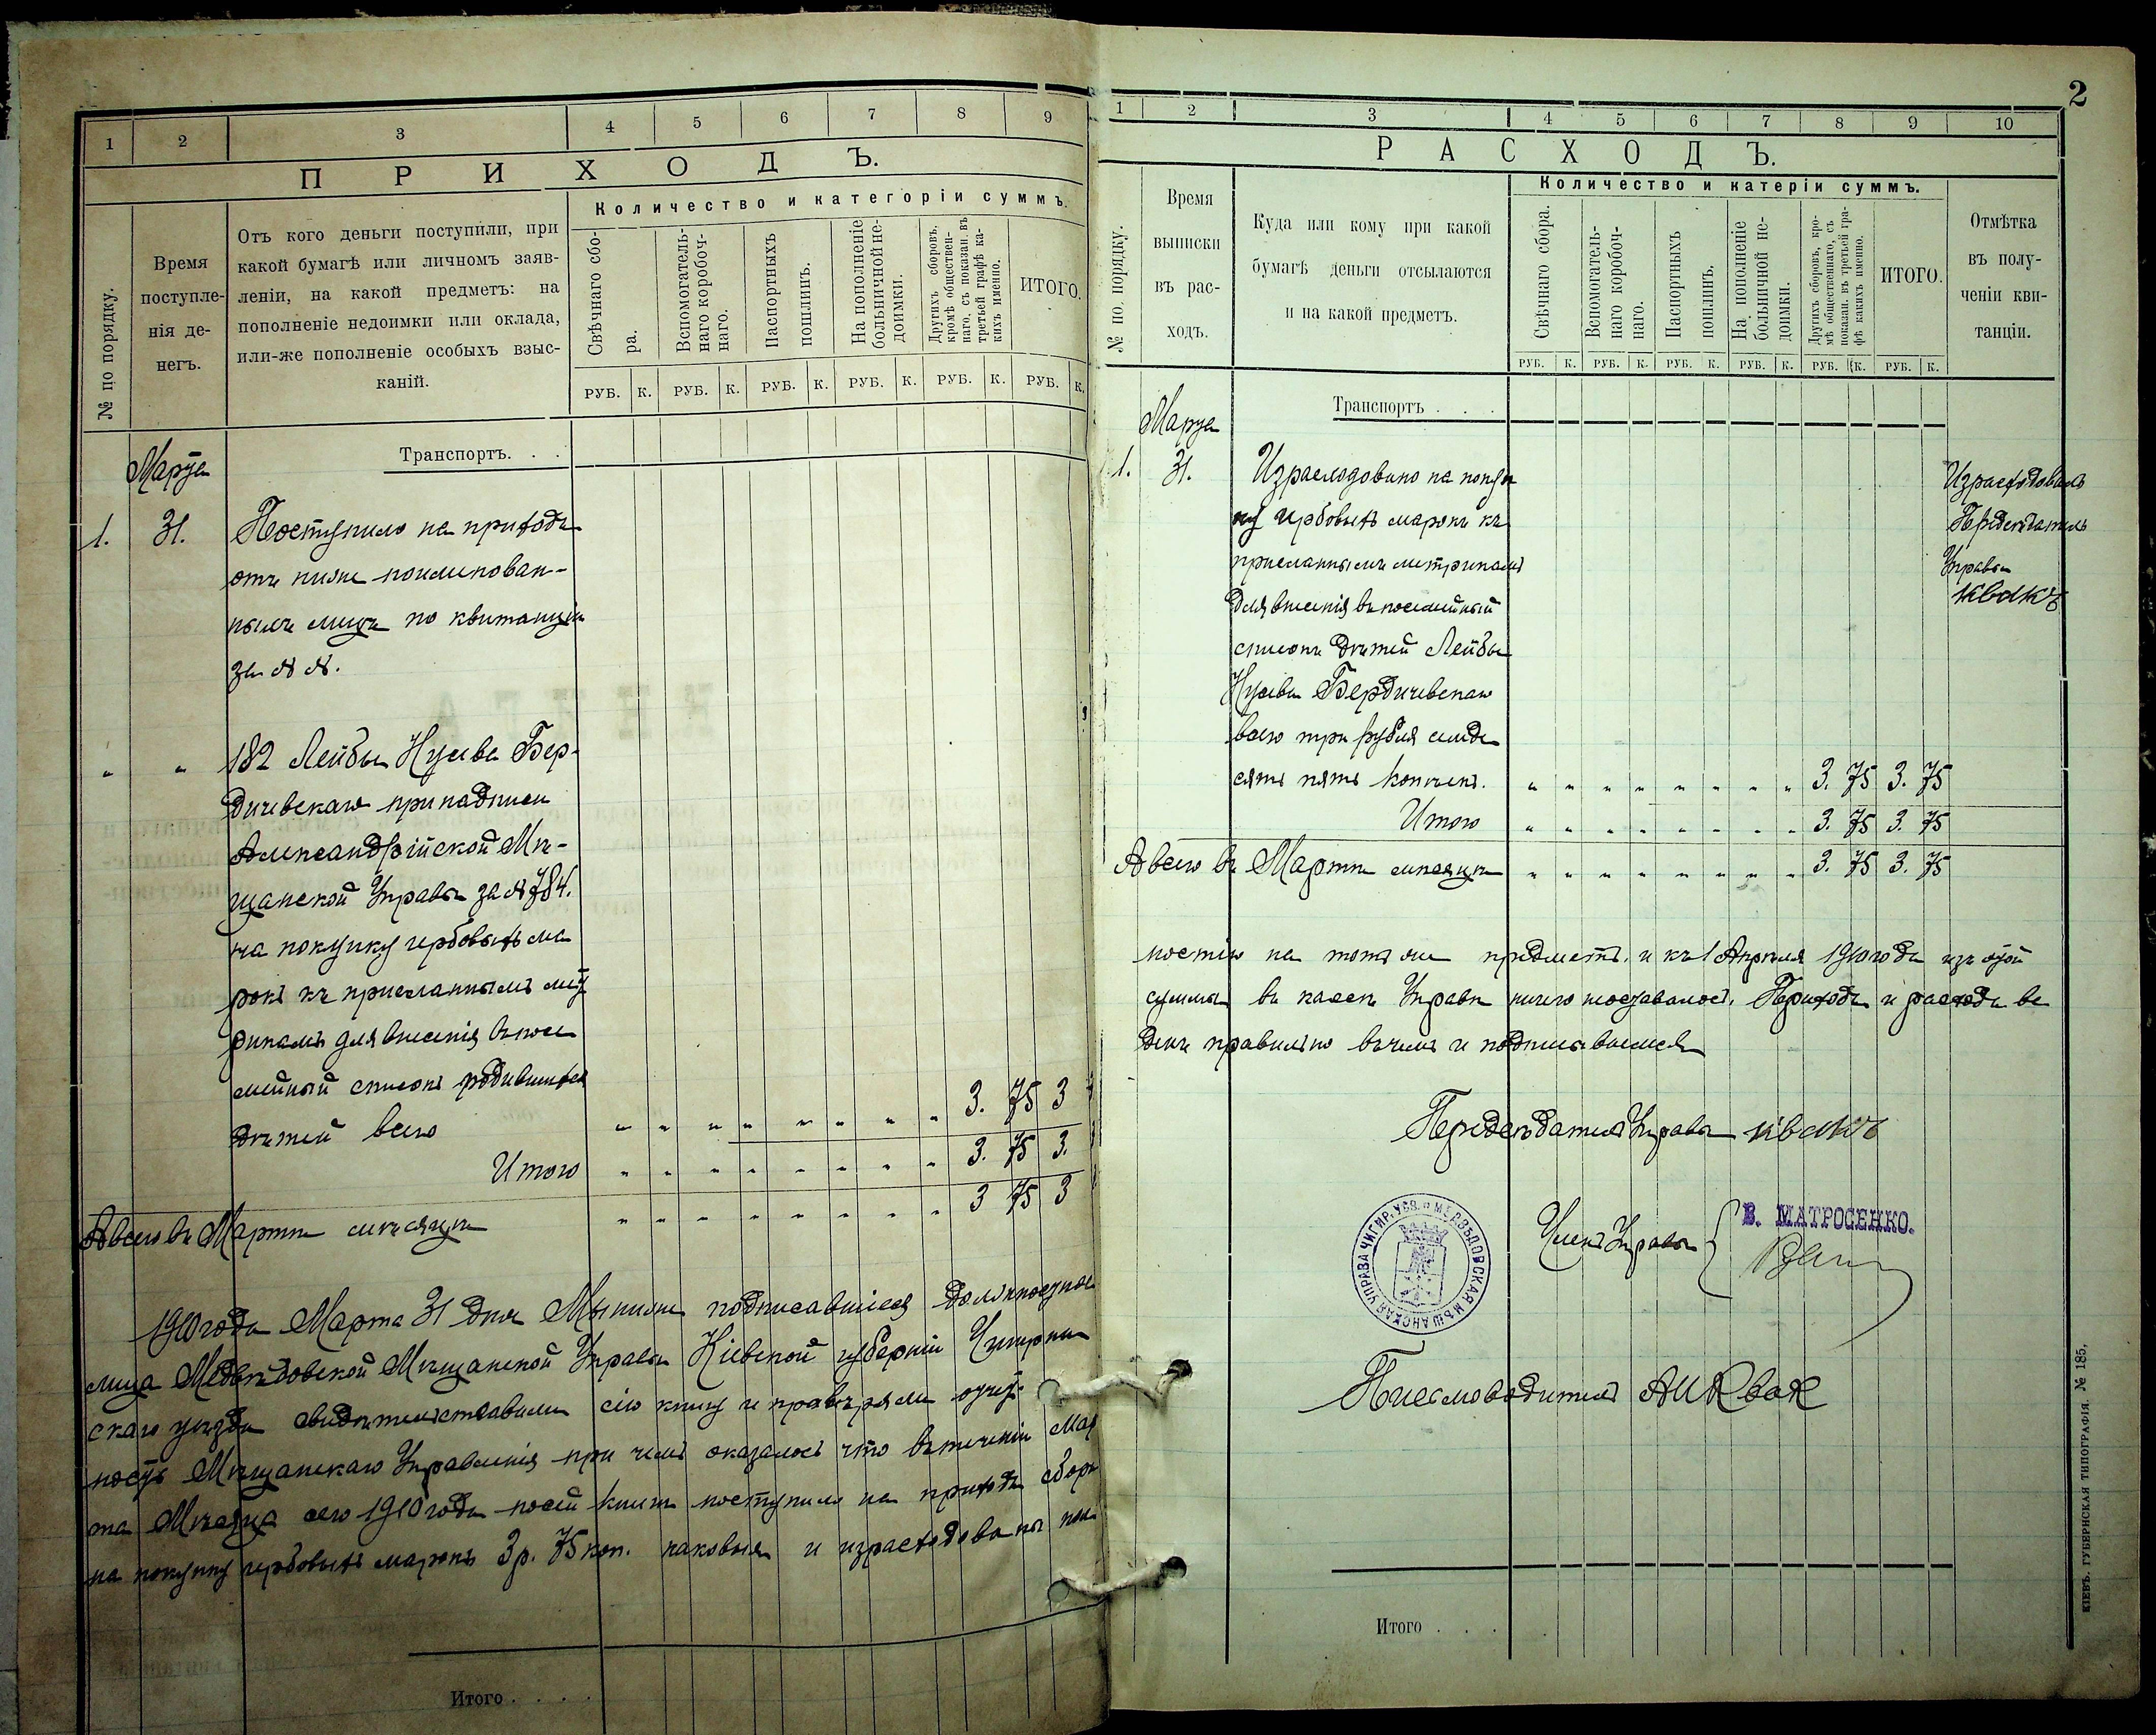 2
1 2 3 4 5 6 7 8 9
ПРИХОДЪ.
Количество и категоріи суммъ.
№ по порядку.
Время
поступле-
нія де-
негъ.
Отъ кого деньги поступили, при
какой бумагѣ или личномъ заяв-
леніи, на какой предметъ: на
пополненіе недоимки или оклада,
или-же пополненіе особыхъ взыс-
каній.
Свѣчнаго сбо-
ра.
Вспомогатель-
наго коробоч-
наго.
Паспортныхъ
пошлинъ.
На пополненіе
больничной не-
доимки.
Другихъ сборовъ,
кромѣ обществен-
наго, съ показан. въ
третьей графѣ ка-
кихъ именно.
ИТОГО.
РУБ. К. РУБ. К. РУБ. К. РУБ. К. РУБ. К. РУБ. К.
Транспортъ. . .
Марта
1. 31. Поступило на приходъ
отъ ниже поименован-
ныхъ лицъ по квитанціи
за № №.
" " 182 Лейбы Нусева Бер-
дичевскаго при надписи
Александрійской Мѣ-
щанской Управы за № 784.
на покупку гербовыхъ ма
рокъ къ присланнымъ мет
рикамъ для внесенія въ посе
мейный списокъ родившихся
дѣтей всего " " " " " " " " 3. 75 3
Итого " " " " " " " " 3. 75 3.
А всего въ Мартѣ мѣсяцѣ " " " " " " " " 3 75 3
1910 года Марта 31 дня Мы ниже подписавшіеся должностные
лица Медвѣдовской Мѣщанской Управы Кіевской губерніи Чигирин
скаго уѣзда свидѣтельствовали сію книгу и провѣряли отчет
ность Мѣщанскаго Управленія при чемъ оказалось что въ теченіи Мар
та Мѣсяца сего 1910 года по сей книгѣ поступило на приходъ сбора
на покупку гербовыхъ марокъ 3 р. 75 коп. каковыя и израсходованы пол
Итого . . . .
1 2 3 4 5 6 7 8 9 10
РАСХОДЪ.
№ по порядку.
Время
выписки
въ рас-
ходъ.
Куда или кому при какой
бумагѣ деньги отсылаются
и на какой предметъ.
Количество и катеріи суммъ.
Свѣчнаго сбора.
Вспомогатель-
наго коробоч-
наго.
Паспортныхъ
пошлинъ.
На пополненіе
больничной не-
доимки.
Другихъ сборовъ, кро-
мѣ общественнаго, съ
показан. въ третьей гра-
фѣ какихъ именно.
ИТОГО.
Отмѣтка
въ полу-
ченіи кви-
танціи.
РУБ. К. РУБ. К. РУБ. К. РУБ. К. РУБ. К. РУБ. К.
Транспортъ . . .
Марта
1. 31. Израсходовано на покуп
ку гербовыхъ марокъ къ
присланнымъ метрикамъ
для внесенія въ посемейный
списокъ дѣтей Лейбы
Нусева Бердичевскаго
всего три рубля семьде
сятъ пять копѣекъ. " " " " " " " " 3. 75 3. 75
Итого " " " " " " " " 3. 75 3. 75
А всего въ Мартѣ мѣсяцѣ " " " " " " " " 3. 75 3. 75
Израсходовалъ
Предсѣдатель
Управы
Квакъ
ностію на тотъ же предметъ, и къ 1 Апрѣля 1910 года изъ этой
суммы въ кассѣ Управы ничего не осталось. Приходъ и расходъ ве
денъ правильно въ чемъ и подписываемся
Предсѣдатель Управы Квакъ
Членъ Управы { В. МАТРОСЕНКО.
МЕДВѢДОВСКАЯ МѢЩАНСКАЯ УПРАВА ЧИГИР. УѢЗ.
Письмоводитель А И Квак
Итого . . .
КІЕВЪ. ГУБЕРНСКАЯ ТИПОГРАФІЯ. № 185.